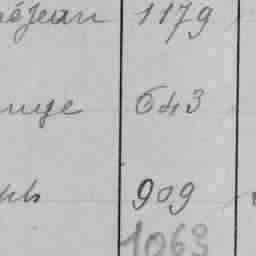 éjean 1179
nge 643
els 909
1063